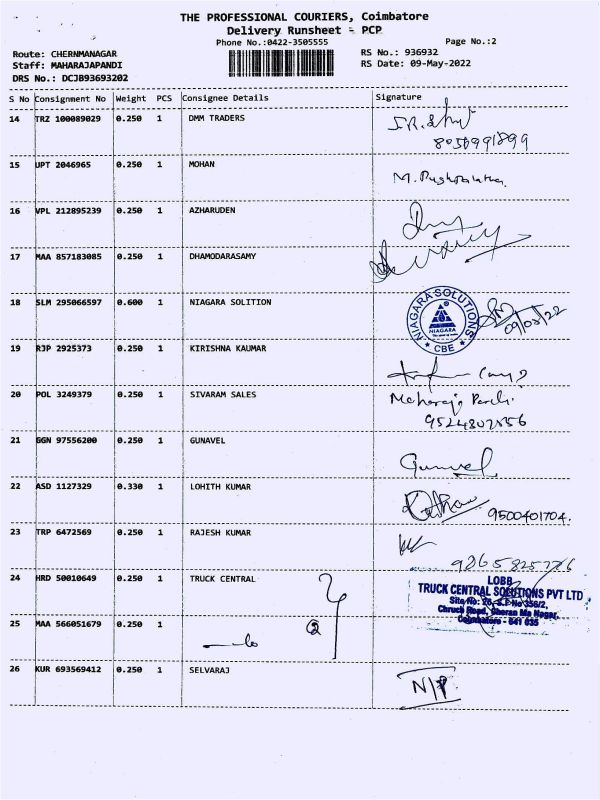 THE PROFESSIONAL COURIERS, Coimbatore
Delivery Runsheet - PCP
Phone No.:0422-3505555 Page No.:2
Route: CHERNMANAGAR RS No.: 936932
Staff: MAHARAJAPANDI RS Date: 09-May-2022
DRS No.: DCJB93693202
S No Consignment No Weight PCS Consignee Details Signature
14 TRZ 100089029 0.250 1 DMM TRADERS
15 UPT 2046965 0.250 1 MOHAN
16 VPL 212895239 0.250 1 AZHARUDEN
17 MAA 857183085 0.250 1 DHAMODARASAMY
18 SLM 295066597 0.600 1 NIAGARA SOLITION
NIAGARA SOLUTIONS
NIAGARA
CBE
09/05/22
19 RJP 2925373 0.250 1 KIRISHNA KAUMAR
20 POL 3249379 0.250 1 SIVARAM SALES
21 GGN 97556200 0.250 1 GUNAVEL
Gunvel
22 ASD 1127329 0.330 1 LOHITH KUMAR
9500401704.
23 TRP 6472569 0.250 1 RAJESH KUMAR
24 HRD 50010649 0.250 1 TRUCK CENTRAL
LOBB
TRUCK CENTRAL SOLUTIONS PVT LTD
Coimbatore - 641 035
25 MAA 566051679 0.250 1
2
26 KUR 693569412 0.250 1 SELVARAJ
N/P